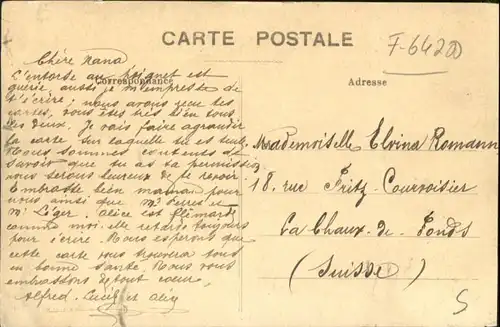 CARTE POSTALE
F-64200
Correspondance
Adresse
Chère Nana
L'entorse au poignet est
guérie, aussi je m'empresse de
t'écrire; nous avons reçu tes
cartes, vous êtes très bien tous
les deux. Je vais faire agrandir
la carte, sur laquelle tu es seule.
Nous sommes contents de
savoir que tu as ta permission
nous serons heureux de te revoir.
Embrasse bien maman pour
nous ainsi que Mr Perret et
Mr Liger. Alice est flémarde
comme moi elle retarde toujours
pour écrire. Nous espérons que
cette carte vous trouvera tous
en bonne santé. Nous vous
embrassons de tout cœur,
Alfred. et
Mademoiselle Elvina Romann
18, rue Fritz-Courvoisier
La Chaux-de-Fonds
(Suisse)
5